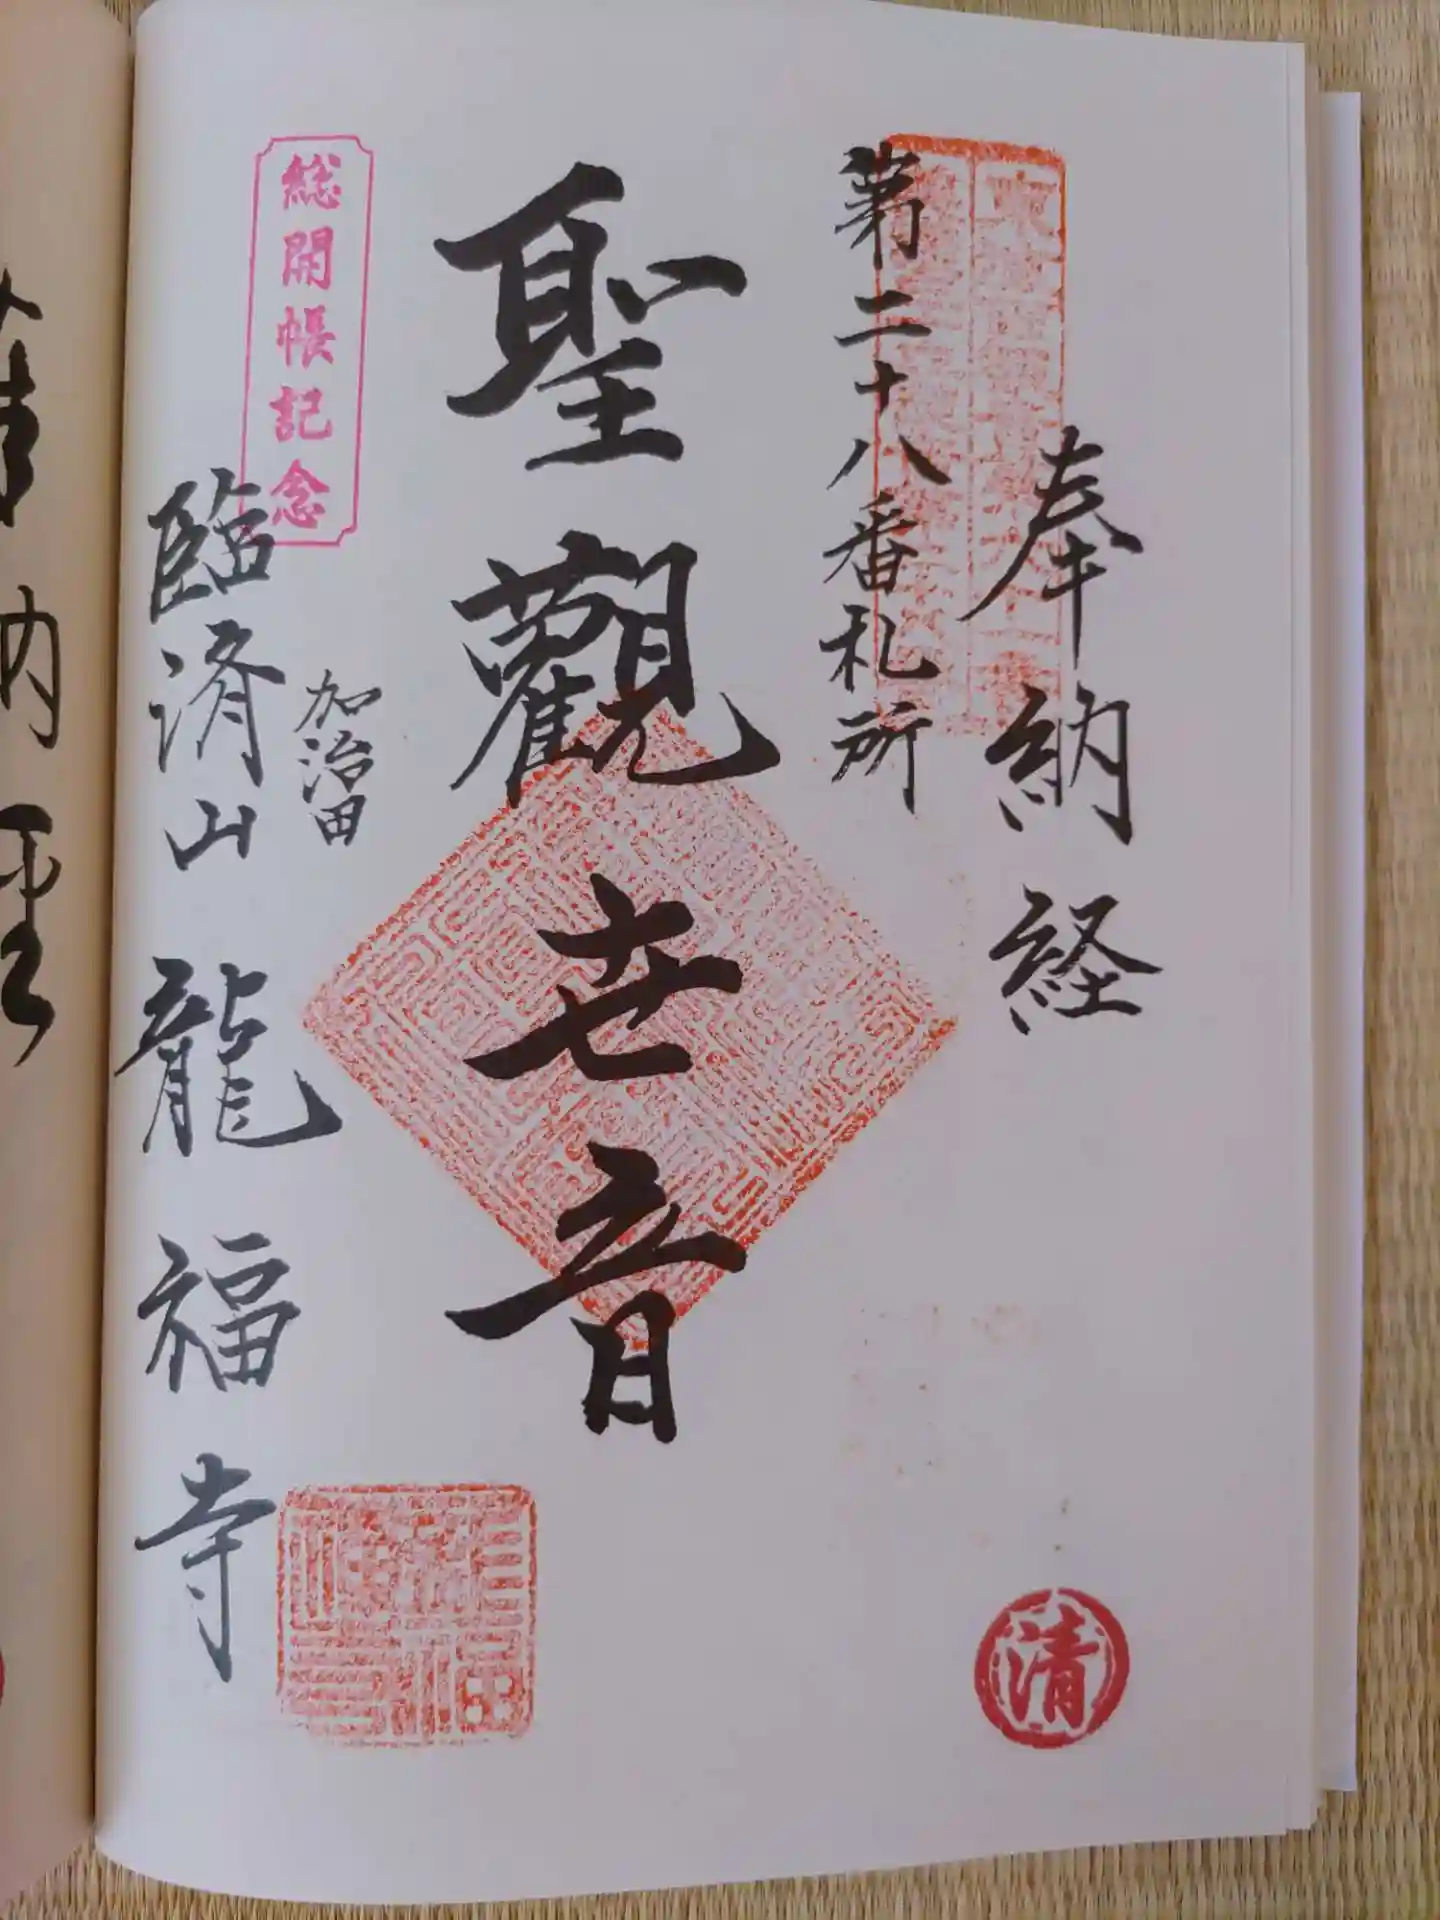 奉納経
第二十八番札所
聖觀世音
総開帳記念
加治田
臨済山龍福寺
清
納経